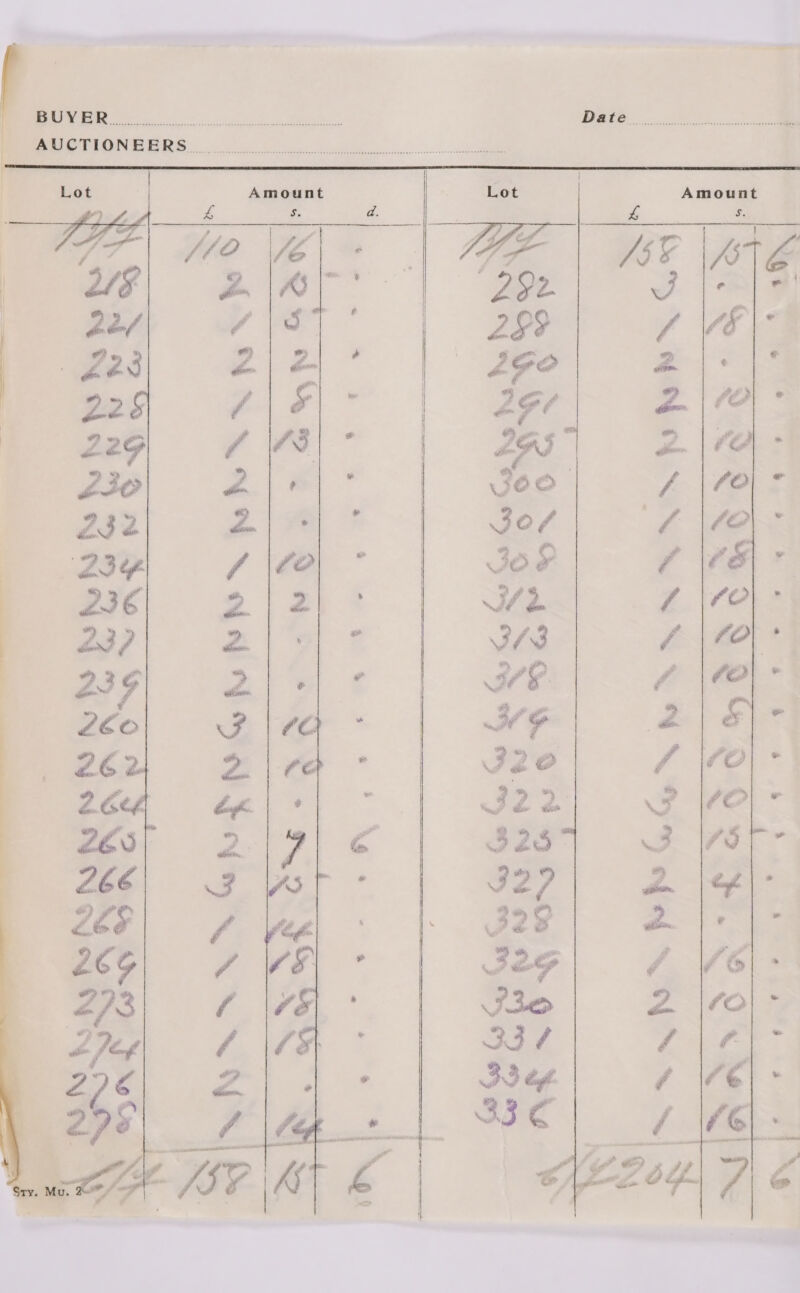 BUYER
Date
AUCTIONEERS
Lot Amount Lot Amount
£ s. d. £ s.
B/F 110 16 - B/F 158 15 6
218 2 15 - 282 3 - -
221 1 5 - 288 1 18 -
223 2 2 - 290 2 - -
228 1 8 - 291 2 10 -
229 1 13 - 295 2 10 -
230 2 - - 300 1 10 -
232 2 - - 301 1 10 -
234 1 10 - 308 1 18 -
236 2 2 - 312 1 10 -
237 2 - - 313 1 10 -
239 2 - - 318 1 10 -
260 3 10 - 319 2 8 -
262 2 10 - 320 1 10 -
264 4 - - 322 3 10 -
265 2 7 6 325 3 15 -
266 3 15 - 327 2 4 -
268 1 14 - 328 2 - -
269 1 18 - 329 1 16 -
273 1 18 - 330 2 10 -
274 1 18 - 331 1 1 -
276 2 - - 334 1 16 -
278 1 14 - 336 1 16 -
C/F 158 15 6 C/F 204 7 6
Sty. Mu. 2